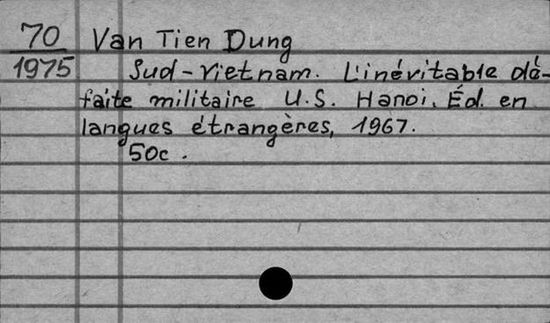 70 Van Tien Dung
1975 Sud-Vietnam. L'inévitable dé-
faite militaire U.S. Hanoi. Éd. en
langues étrangères, 1967.
50c.